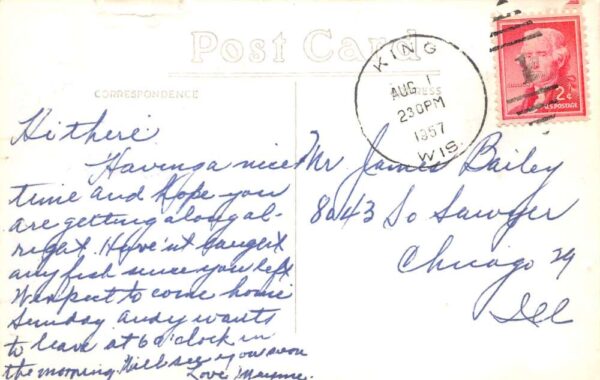 Post Card
CORRESPONDENCE
ADDRESS
KING
AUG 1
230PM
1957
WIS
2¢
U.S. POSTAGE
Hi there
Having a nice
time and Hope you
are getting along al-
right. Have'nt Caught
any fish since you left
We expect to come home
Sunday. Andy wants
to leave at 6 o'clock in
the morning. Will see you soon
Love
Mr James Bailey
8043 So Sawyer
Chicago 29
Ill